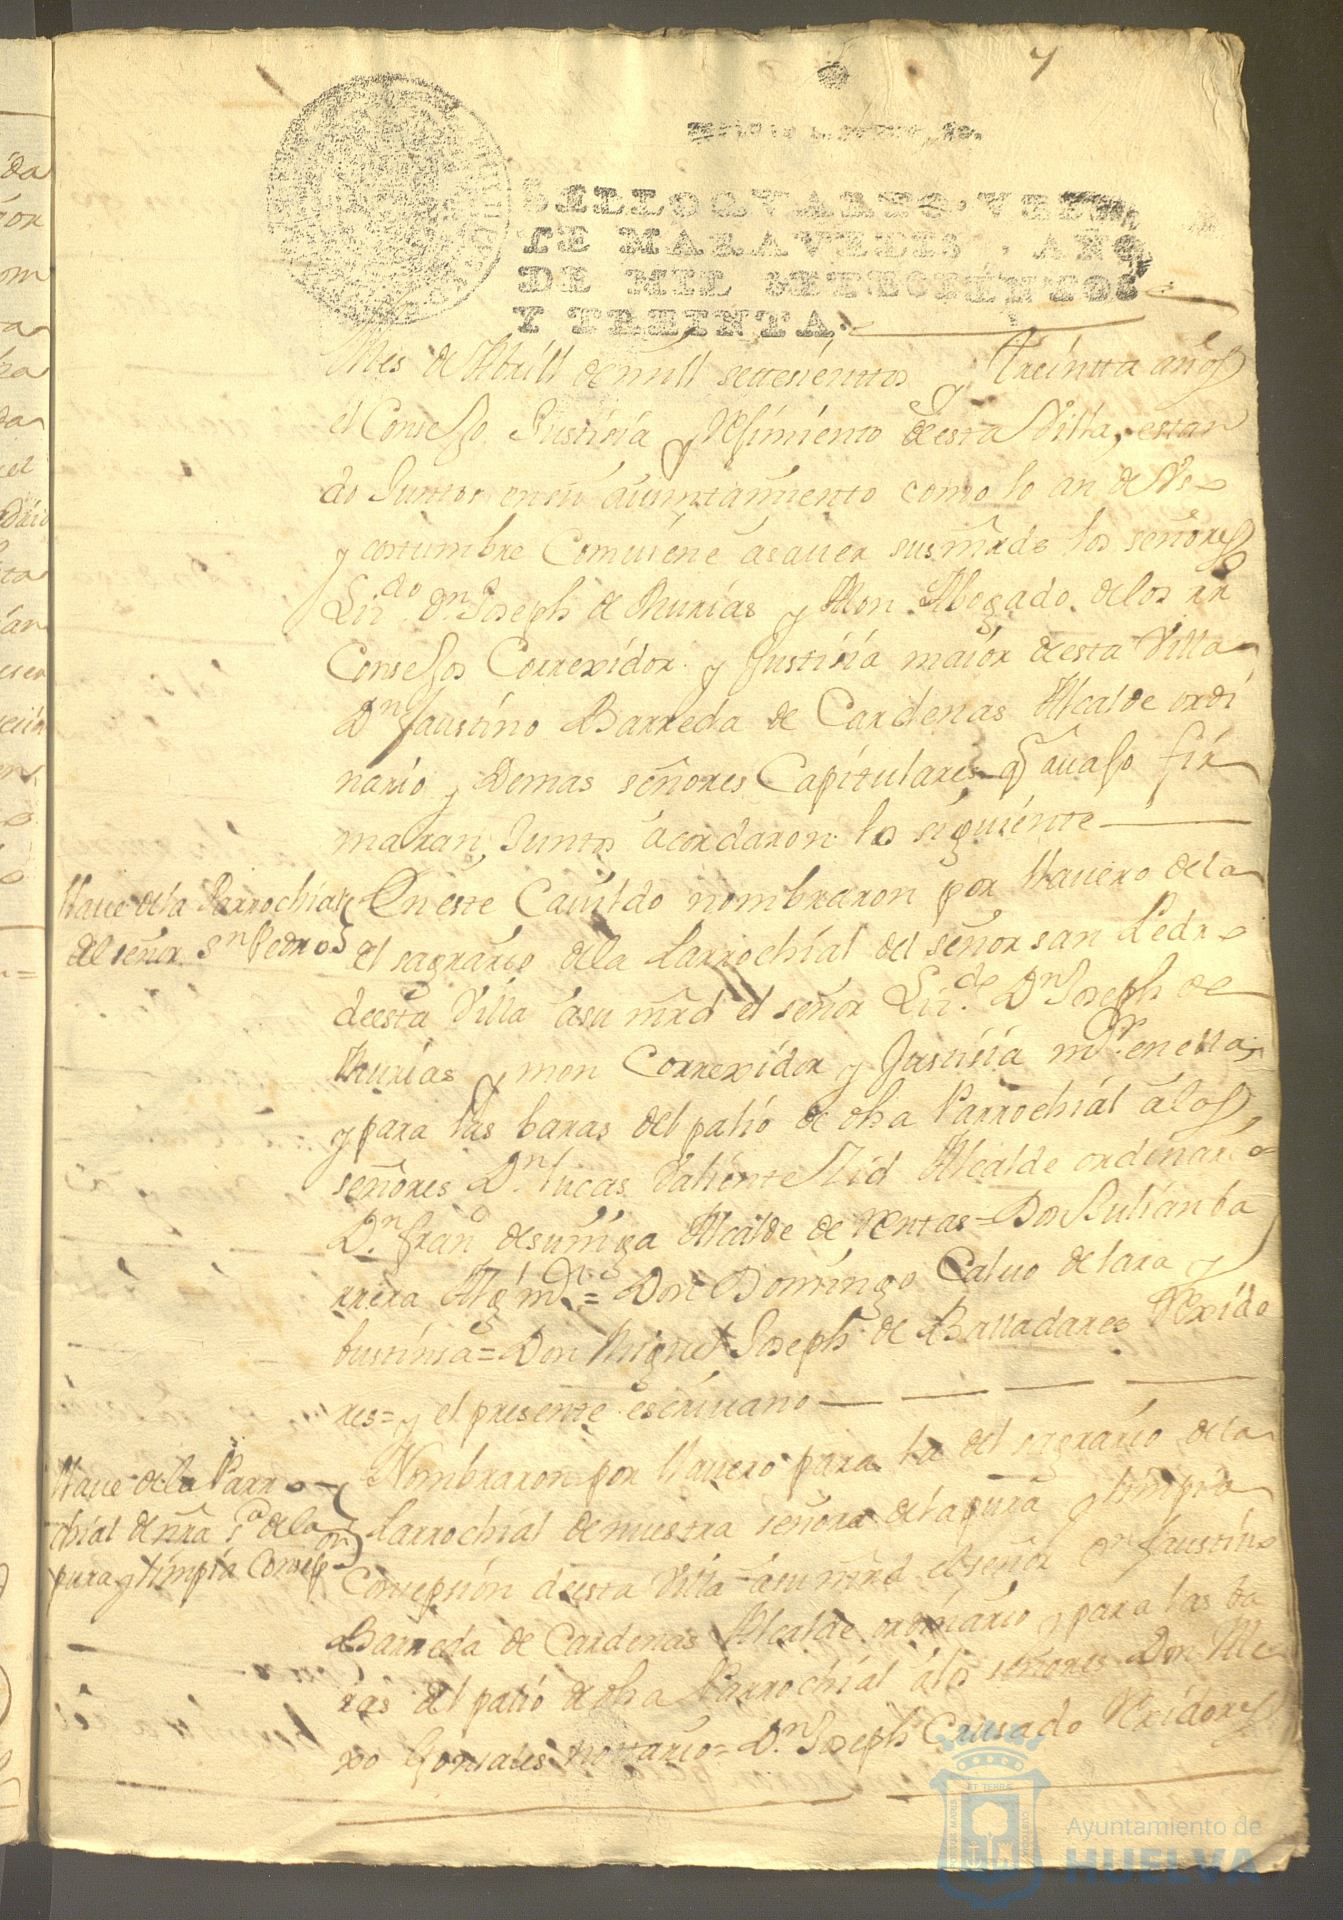 7
SELLO QVARTO, VEIN
TE MARAVEDIS, AÑO
DE MIL SETECIENTOS
Y TREINTA.
Mes de Abrill de mill settesienttos y treinta años
el Consejo Justisia y Resimiento de esta Villa, estan
do Juntos en su aiuntamiento como lo an de Vso
y costumbre Combiene asauer sus mrds los señores
Lizdo Dn Joseph de Murias y Mon Abogado de los RR
Consejos Correxidor y Justisia maior de esta Villa
Dn faustino Barreda de Cardenas Alcalde ordi
nario y Demas señores Capitulares q auajo fir
maran Juntos acordaron lo siguiente
llaue de la Parrochial
del señor Sn Pedro
En este Cauildo nombraron por llauero de la
el sagrario de la Parrochial del señor san Pedro
de esta Villa a su mrd el señor Lizdo Dn Joseph de
Murias y mon Correxidor y Justisia mor en ella
y para las baras del palio de dha Parrochial a los
señores Dn lucas Valiente Alcalde ordinario
Dn Frano de suñiga Alcalde de Rentas = Don Julian ba
rrera Alg mor = Don Domingo Caluo de lara y
bustinsa = Don Miguel Joseph de Balladares Rexido
res = y el presente escriuano
llaue de la Parro
chial de nra Sa de la
pura y limpia Consepon
Nombraron por llauero para la del sagrario de la
Parrochial de nuestra señora de la pura y limpia
Consepsion de esta Villa a su mrd el señor Dn faustino
Barreda de Cardenas Alcalde ordinario y para las ba
ras del palio de dha Parrochial a los señores Don Ale
xo Gonsales nottario = Dn Joseph Crusado Rexidores
Ayuntamiento de
HUELVA